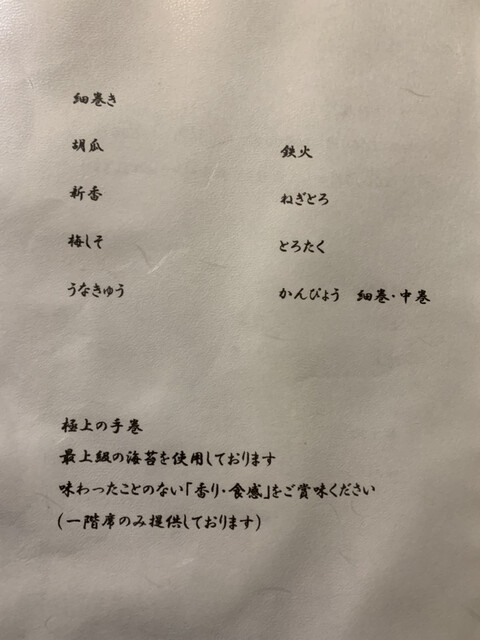 細巻き
胡瓜
鉄火
新香
ねぎとろ
梅しそ
とろたく
うなきゅう
かんぴょう 細巻・中巻
極上の手巻
最上級の海苔を使用しております
味わったことのない「香り・食感」をご賞味ください
(一階席のみ提供しております)